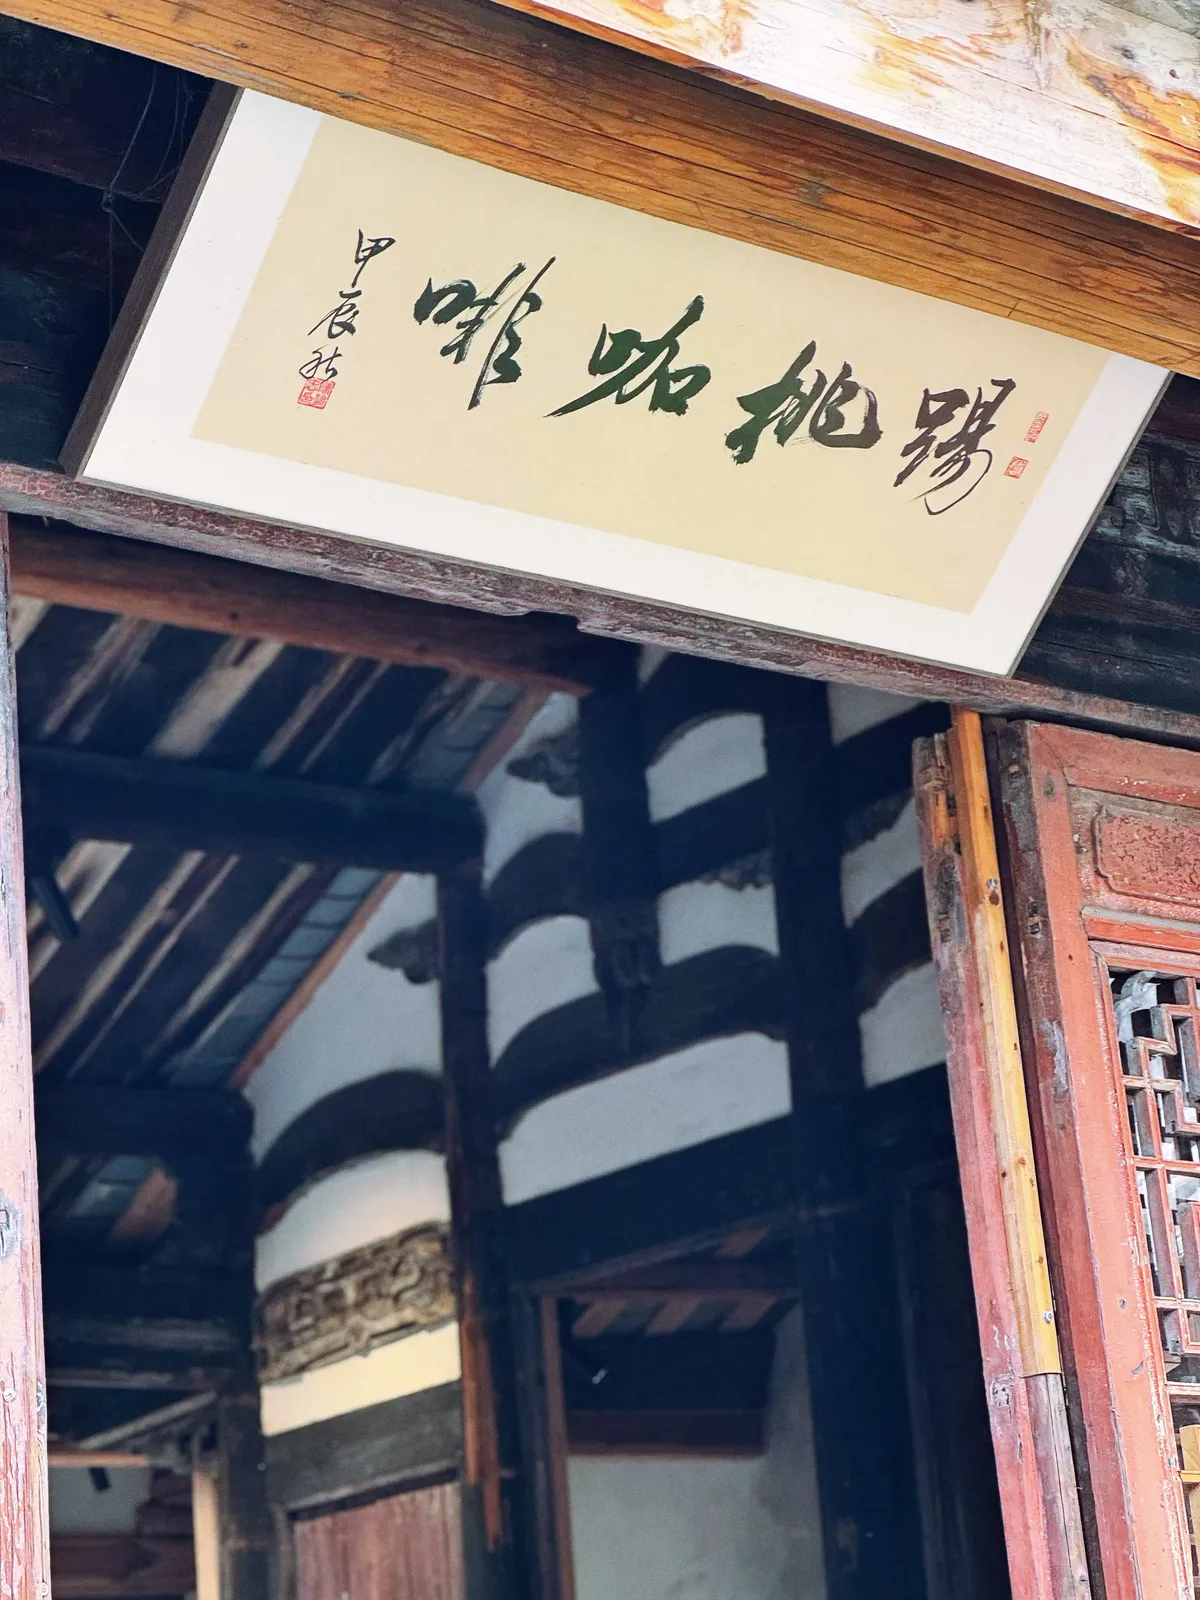 踢挑咖啡
甲辰秋